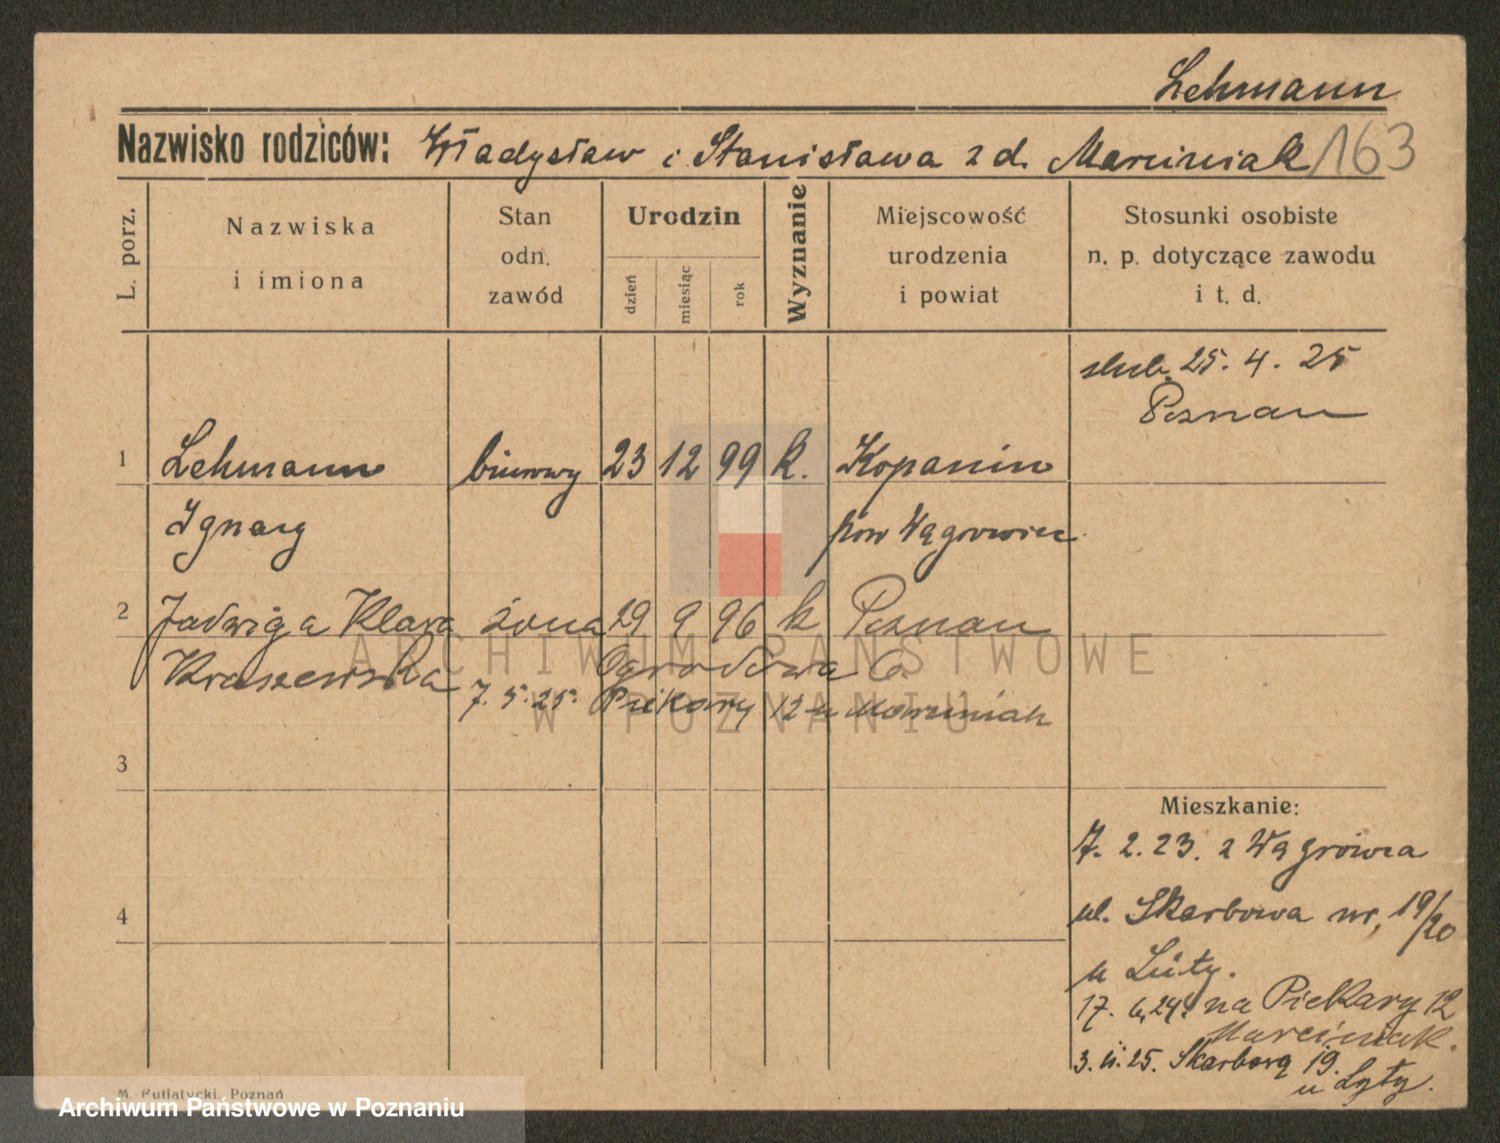 Lehmann
Nazwisko rodziców: Władysław i Stanisława z d. Marciniak 163
L. porz.
Nazwiska
i imiona
Stan
odn.
zawód
Urodzin
dzień
miesiąc
rok
Wyznanie
Miejscowość
urodzenia
i powiat
Stosunki osobiste
n. p. dotyczące zawodu
i t. d.
ślub. 25. 4. 25
Poznan
1 Lehmann biurowy 23 12 99 k. Kopanin
Ignacy pow Wągrowiec
2 Jadwiga Klara żona 29 9 96 k Poznan
Kraszewska Ogrodowa 6
7. 5. 25. Piekary 12 u Marciniak
3
Mieszkanie:
7. 2. 23. z Wągrówca
4
ul. Skarbowa nr. 19/20
u Luty.
17. 6. 24. na Piekary 12
Marciniak.
3. 11. 25. Skarbową 19.
u Luty.
M. Putiatycki, Poznań
ARCHIWUM PAŃSTWOWE
W POZNANIU
Archiwum Państwowe w Poznaniu